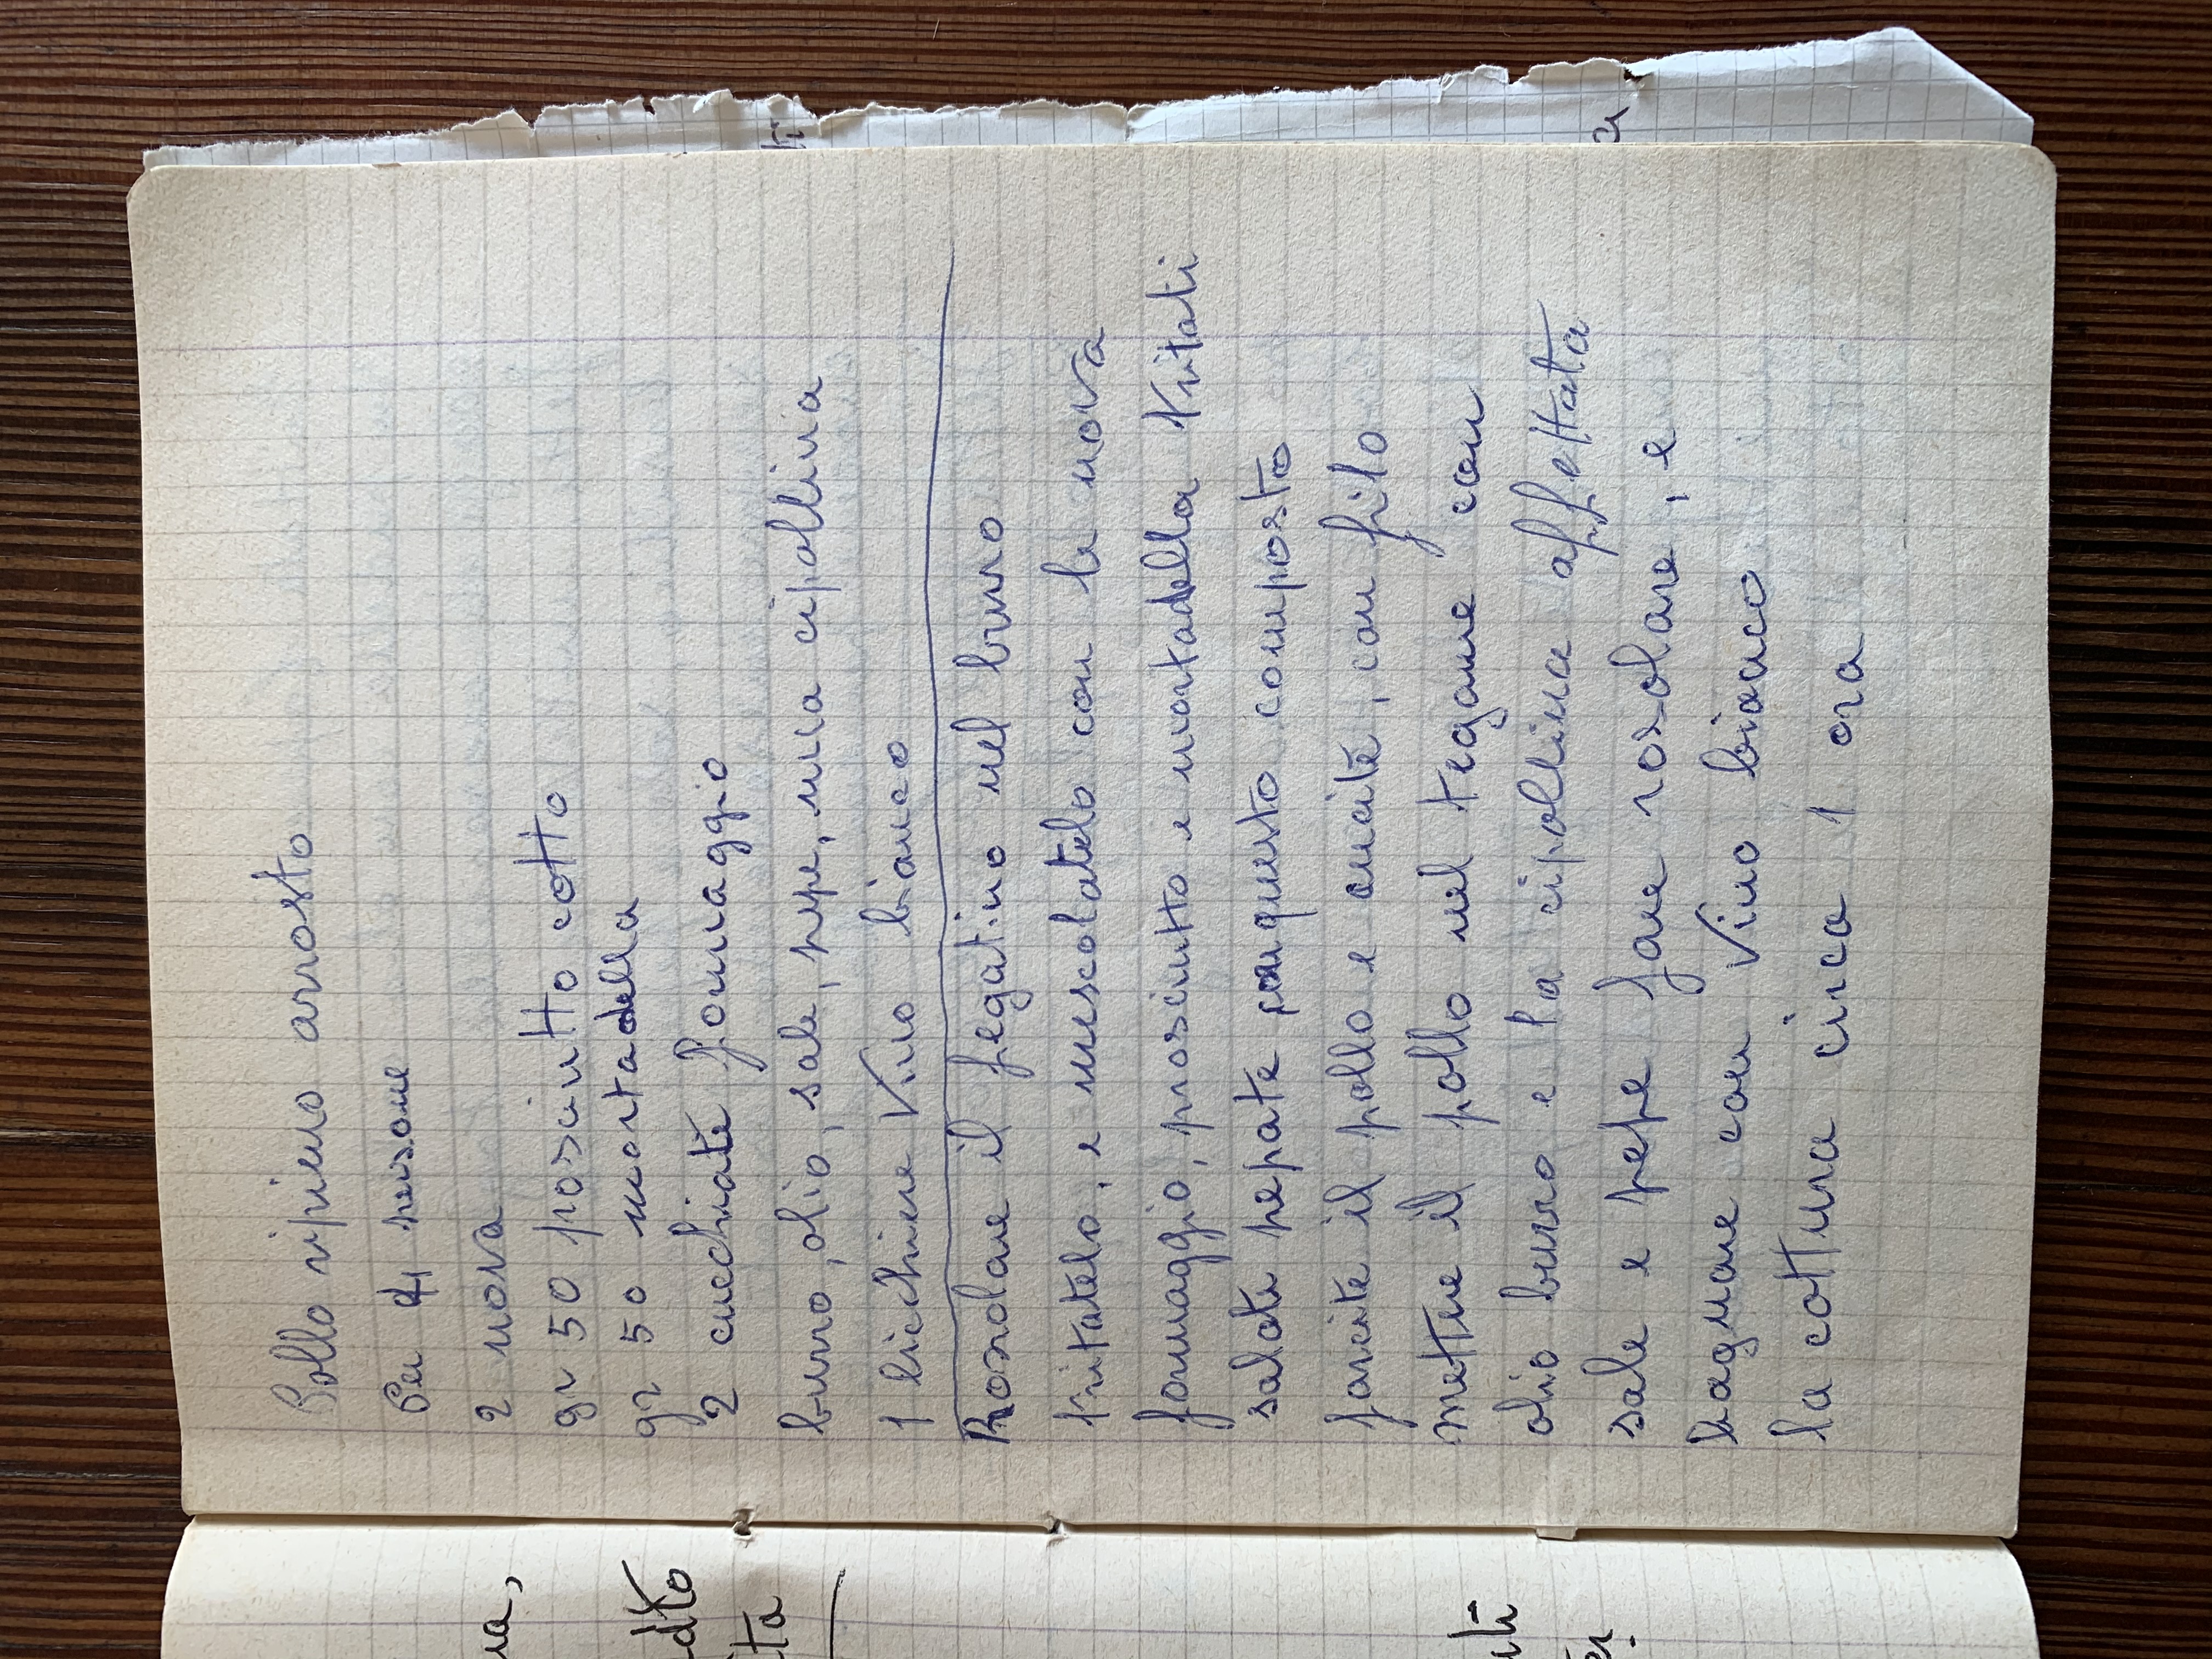 Pollo ripieno arrosto
Per 4 persone
2 uova
gr 50 posciutto cotto
gr 50 mortadella
2 cucchiate formaggio
burro, olio, sale, pepe, una cipollina
1 bicchiere Vino bianco
Rosolare il fegatino nel burro
tritatelo, e mescolatelo con le uova
formaggio, prosciutto e mortadella tritati
salate pepate con questo composto
farcite il pollo e cucite, con filo
mettere il pollo nel tegame con
olio burro e la cipollina affettata
sale e pepe fare rosolare, e
bagnare con Vino bianco
la cottura circa 1 ora